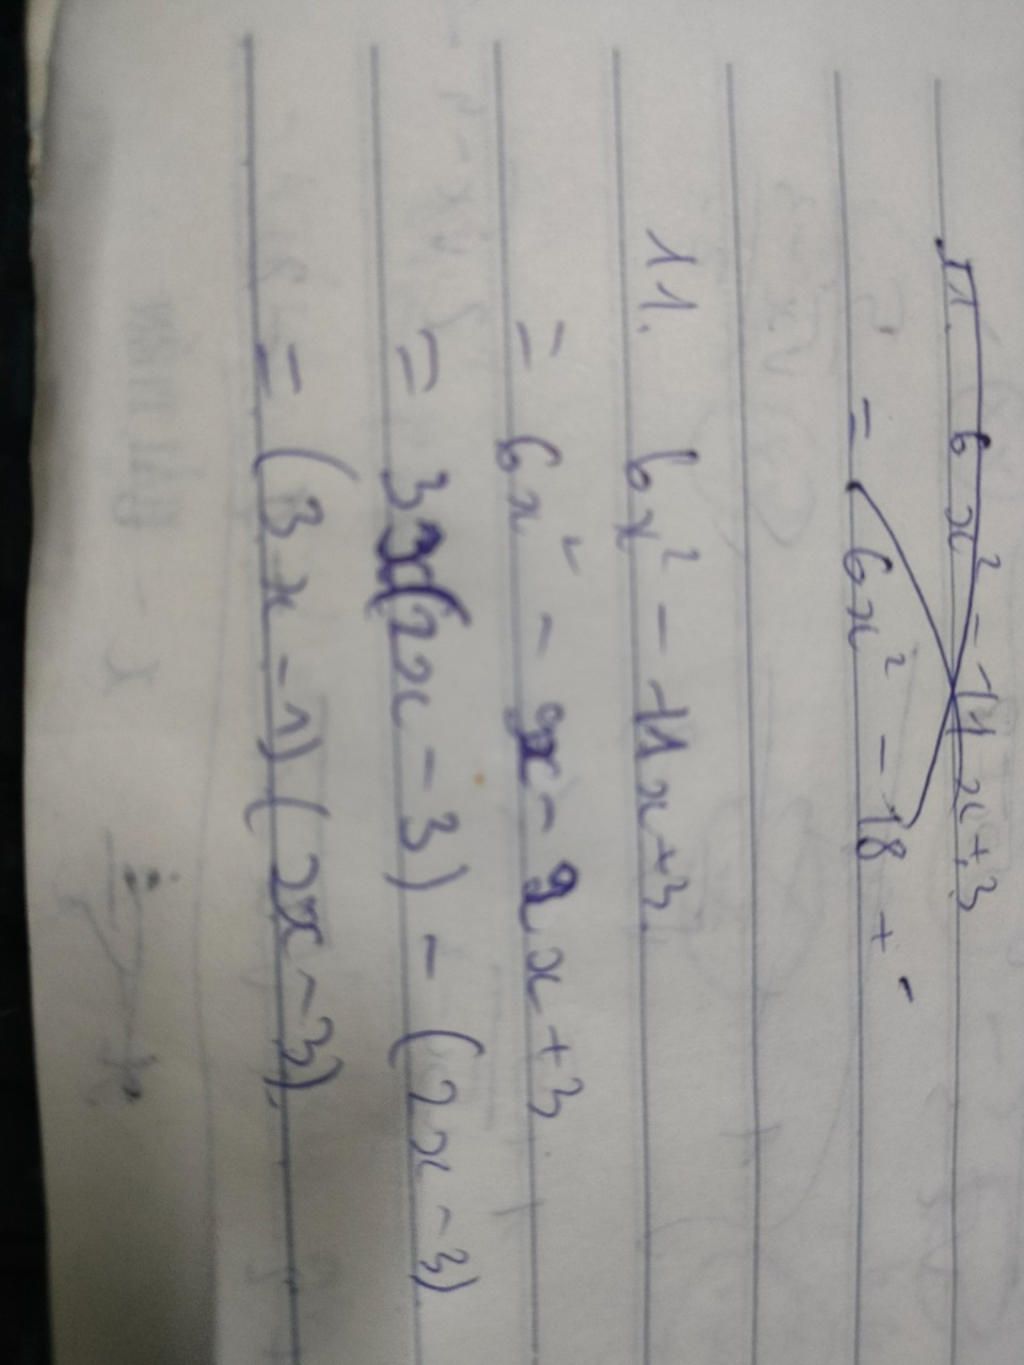 11. 6x² - 11x + 3
= 6x² - 18 + -
11. 6x² - 11x + 3.
= 6x² - 9x - 2x + 3.
= 3x(2x - 3) - (2x - 3)
= (3x - 1) (2x - 3).